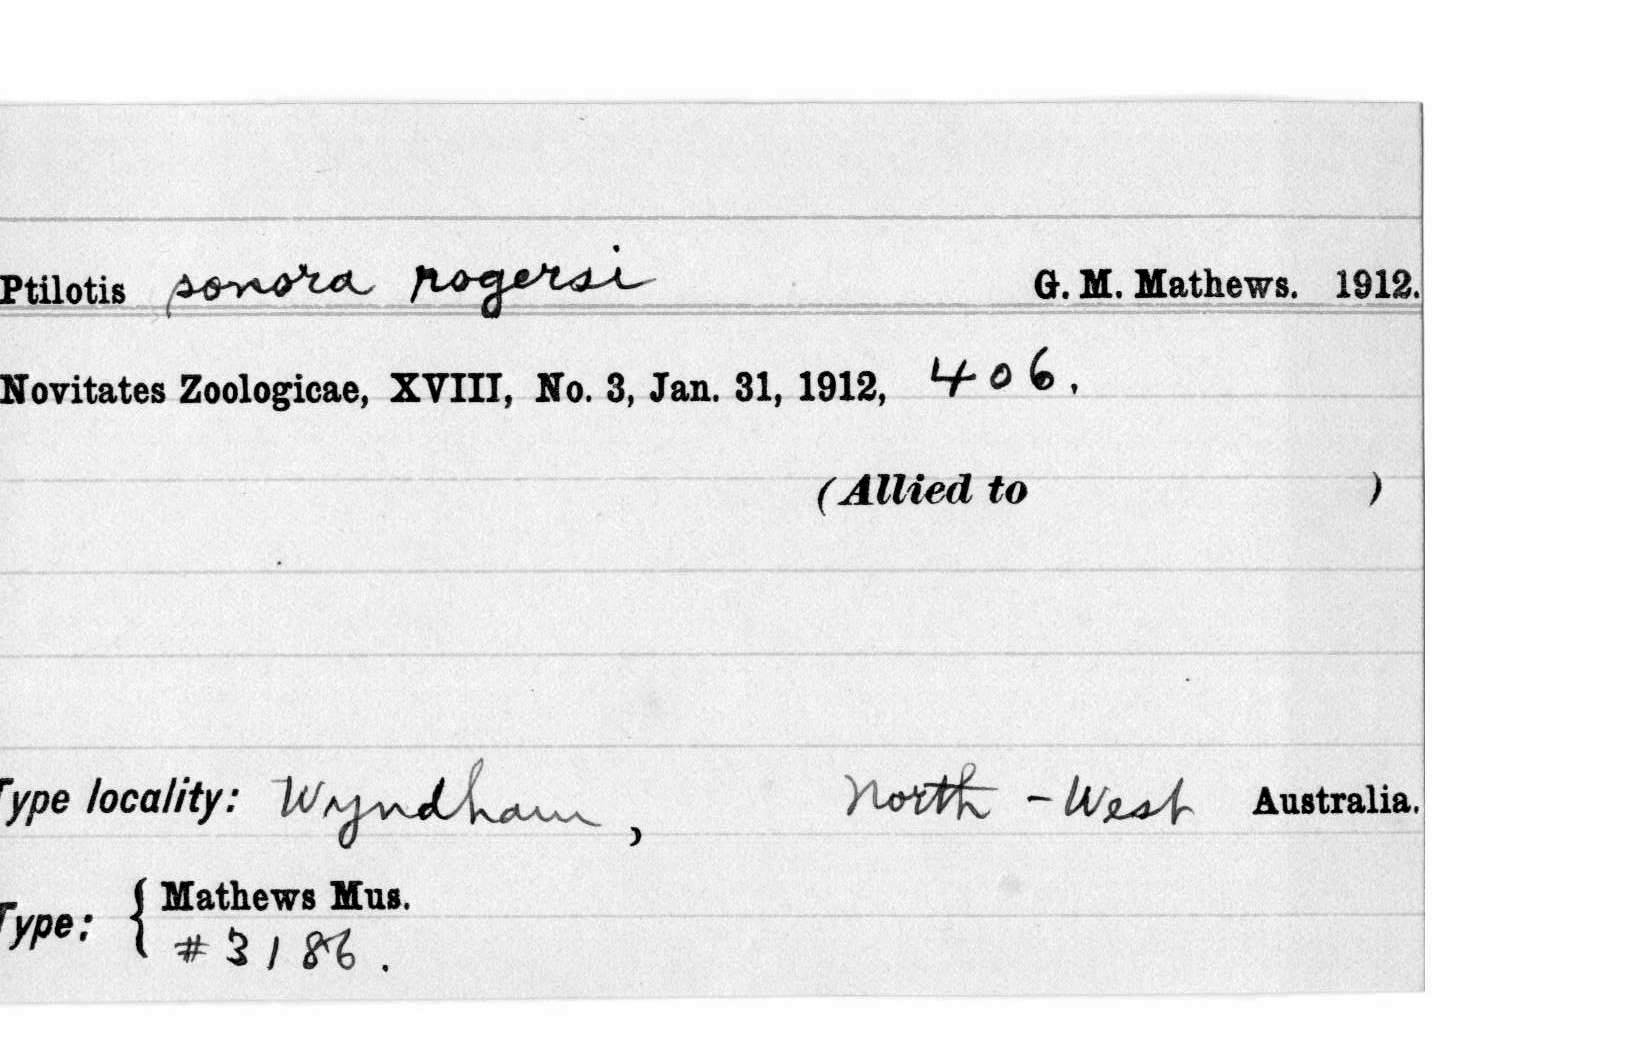 Ptilotis sonora rogersi G. M. Mathews. 1912.
Novitates Zoologicae, XVIII, No. 3, Jan. 31, 1912, 406.
(Allied to )
Type locality: Wyndham, North-West Australia.
Type: { Mathews Mus.
#3186.